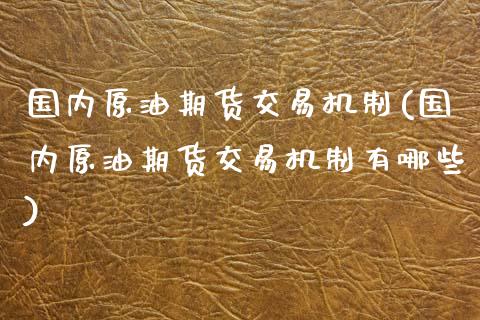 国内原油期货交易机制(国
内原油期货交易机制有哪些
)